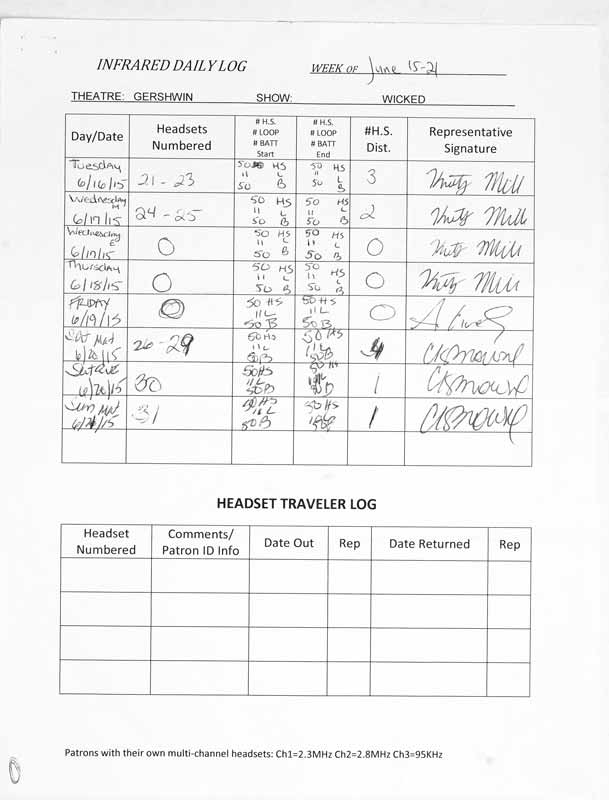 INFRARED DAILY LOG WEEK OF June 15-21
THEATRE: GERSHWIN SHOW: WICKED
Day/Date Headsets Numbered # H.S. # LOOP # BATT Start # H.S. # LOOP # BATT End #H.S. Dist. Representative Signature
Tuesday 6/16/15 21 - 23 50 HS 11 L 50 B 50 HS 11 L 50 B 3
Wednesday M 6/17/15 24 - 25 50 HS 11 L 50 B 50 HS 11 L 50 B 2
Wednesday E 6/17/15 0 50 HS 11 L 50 B 50 HS 11 L 50 B 0
Thursday 6/18/15 0 50 HS 11 L 50 B 50 HS 11 L 50 B 0
FRIDAY 6/19/15 0 50 HS 11 L 50 B 50 HS 11 L 50 B 0
Sat Mat 6/20/15 26 - 29 50 HS 11 L 50 B 50 HS 11 L 50 B 4
Sat Eve 6/20/15 30 50 HS 11 L 50 B 50 HS 11 L 50 B 1
Sun Mat 6/21/15 31 50 HS 11 L 50 B 50 HS 1
HEADSET TRAVELER LOG
Headset Numbered Comments/ Patron ID Info Date Out Rep Date Returned Rep
Patrons with their own multi-channel headsets: Ch1=2.3MHz Ch2=2.8MHz Ch3=95KHz